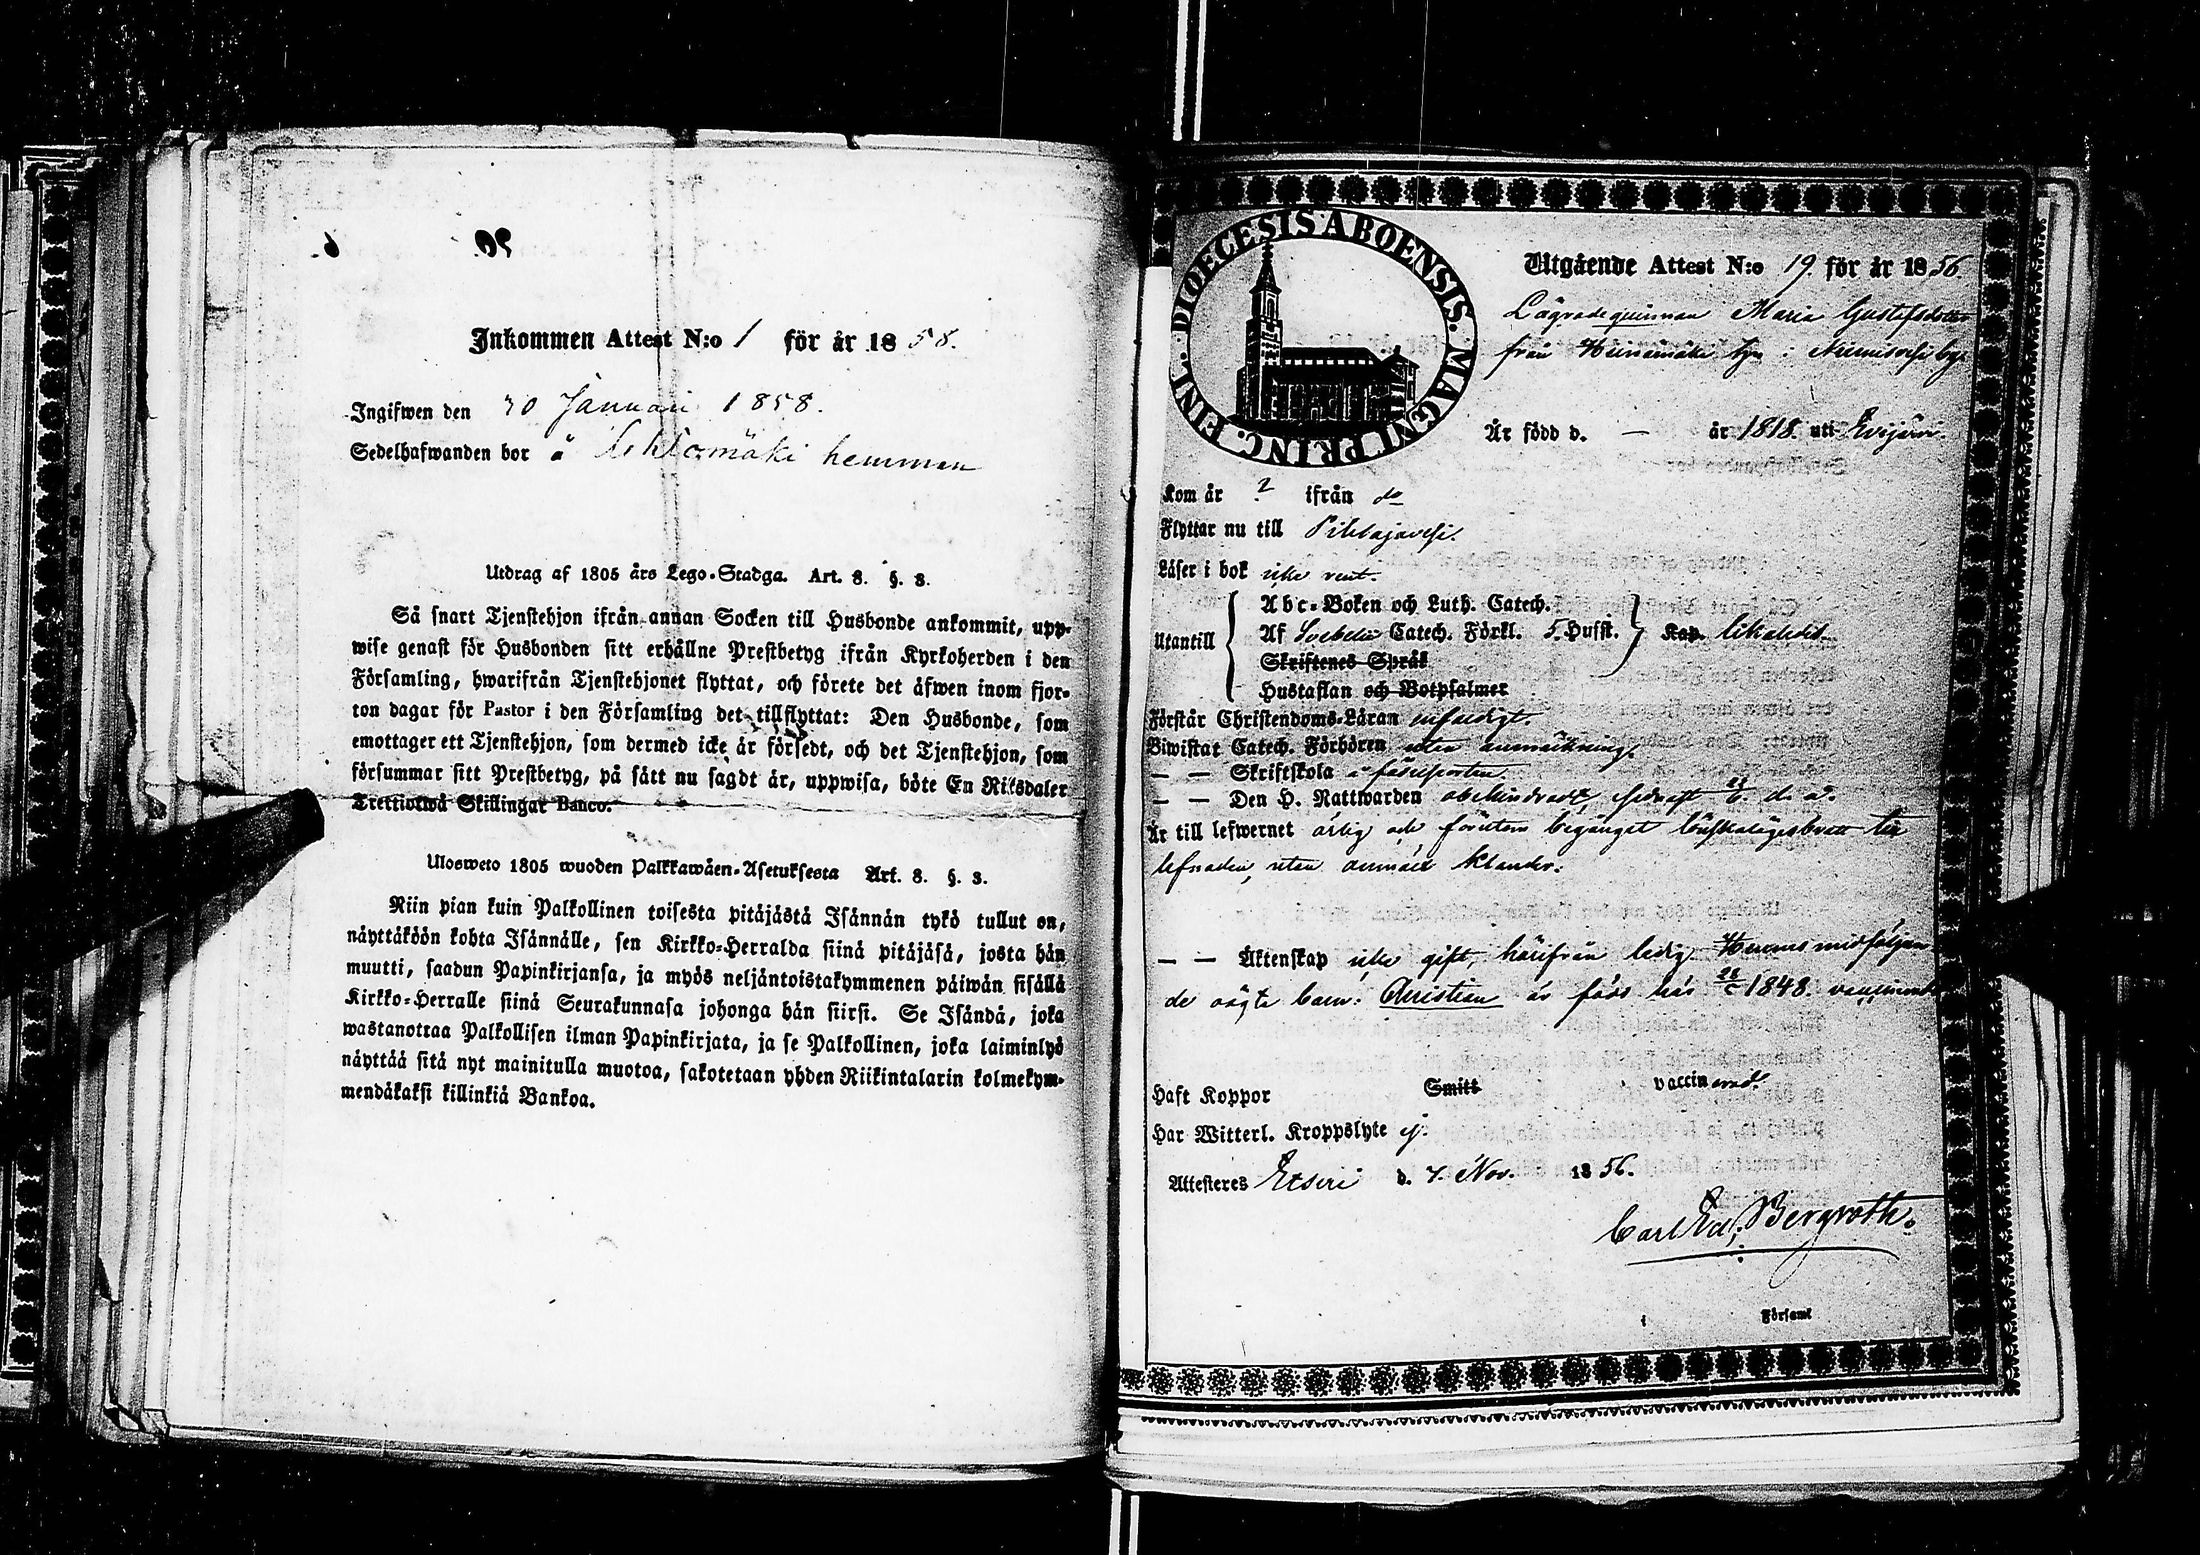 Inkommen Attest N:o 1 för år 1858.
Ingifwen den 30 Januari 1858.
Sedelhafwanden bor å Lehtomäki hemman
Utdrag af 1805 års Lego-Stadga. Art. 8. §. 3.
Så snart Tjenstehjon ifrån annan Socken till Husbonde ankommit, upp-
wise genast för Husbonden sitt erhållne Prestbetyg ifrån Kyrkoherden i den
Församling, hwarifrån Tjenstehjonet flyttat, och förete det äfwen inom fjor-
ton dagar för Pastor i den Församling det tillflyttat: Den Husbonde, som
emottager ett Tjenstehjon, som dermed icke är försedt, och det Tjenstehjon, som
försummar sitt Prestbetyg, på sätt nu sagdt är, uppwisa, böte En Riksdaler
Trettiotwå Skillingar Banco.
Ulosweto 1805 wuoden Palkkawäen-Asetuksesta Art. 8. §. 3.
Niin pian kuin Palkollinen toisesta pitäjästä Isännän tykö tullut on,
näyttäköön kohta Isännälle, sen Kirkko-Herralda siinä pitäjäsä, josta hän
muutti, saadun Papinkirjansa, ja myös neljäntoistakymmenen päiwän sisällä
Kirkko-Herralle siinä Seurakunnasa johonga hän siirsi. Se Isändä, joka
wastanottaa Palkollisen ilman Papinkirjata, ja se Palkollinen, joka laiminlyö
näyttää sitä nyt mainitulla muotoa, sakotetaan yhden Riikintalarin kolmekym-
mendäkaksi killinkiä Bankoa.
DIOECESIS ABOENSIS. MAGNI PRINC. FINL.
Utgående Attest N:o 19. för år 1856
Lägradequinnan Maria Gustafsdotter
från Heinämäki by
Är född d. — år 1818. uti Evijärvi.
Kom år ? ifrån do
Flyttar nu till Pihlajavesi.
Läser i bok icke rent.
Utantill
Abc-Boken och Luth. Catech.
Af Svebelii Catech. Förkl. 5. Hufst. Kap. likaledes.
Skriftenes Språk
Hustaflan och Botpsalmer
Förstår Christendoms-Läran enfaldigt.
Biwistat Catech. Förhören utan anmärkning.
— — Skriftskola
— — Den H. Nattwarden obehindradt, senast
Är till lefwernet ärlig och förutom begånget lönskalägesbrott till
lefnaden, utan anmäld klander.
— — Äktenskap icke gift, härifrån ledig. Hennes medföljan-
de oägta barn: Christian är född här 1848.
Haft Koppor Smitt vaccinerad.
Har Witterl. Kroppslyte ej.
Attesteres Etseri d. 7. Nov. 1856.
Carl Ed. Bergroth.
i Församl